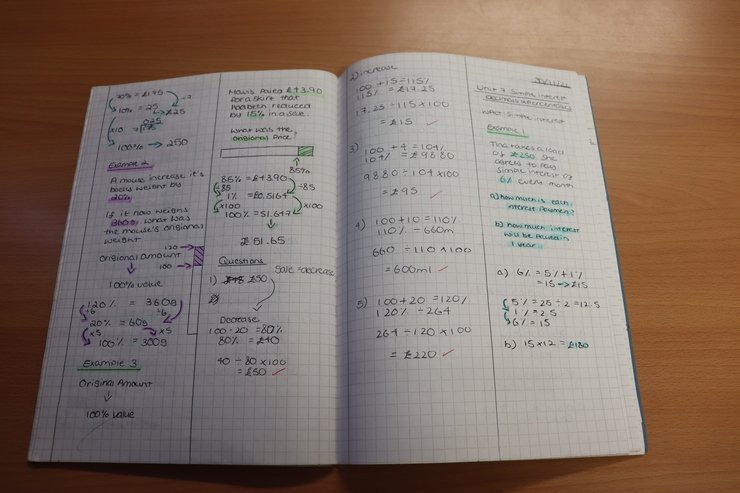 70% = £175
÷7
10% = 25
→£25
×10
025
7)175
100% → 250
Example 2
A mouse increase it's
body weight by
20%
If it now weighs
360g what was
the mouse's origional
weight
120
origional amount
100
↓
100% value
120% = 360g
÷6 ÷6
20% = 60g
×5 ×5
100% = 300g
Example 3
Original Amount
↓
100% value
Mavis paid £43.90
for a skirt that
had been reduced
by 15% in a sale.
What was the
origional price?
85%
85% = £43.90
÷85 ÷85
1% = £0.5164
×100 ×100
100% = 51.647
↓
£51.65
Questions
Sale = decrease
1) £50
2)
Decrease
100 - 20 = 80%
80% = £40
40 ÷ 80 × 100
= £50 ✓
2) increase
100 + 15 = 115%
115% = £17.25
17.25 ÷ 115 × 100
= £15 ✓
3) 100 + 4 = 104%
104% = £9880
9880 ÷ 104 × 100
= £95 ✓
4) 100 + 10 = 110%
110% ÷ 660m
660 ÷ 110 × 100
= 600ml ✓
5) 100 + 20 = 120%
120% ÷ 264
264 ÷ 120 × 100
= £220 ✓
Unit 7 Simple Interest
decimals & percentages
What is simple interest
Example 1
Tina takes a loan
of £250 she
agrees to pay
simple interest of
6% every month
a) how much is each
interest payment?
b) how much interest
will be paid in
1 year
a) 6% = 5% + 1%
= 15 → £15
5% = 25 ÷ 2 = 12.5
1% = 2.5
6% = 15
b) 15 × 12 = £180